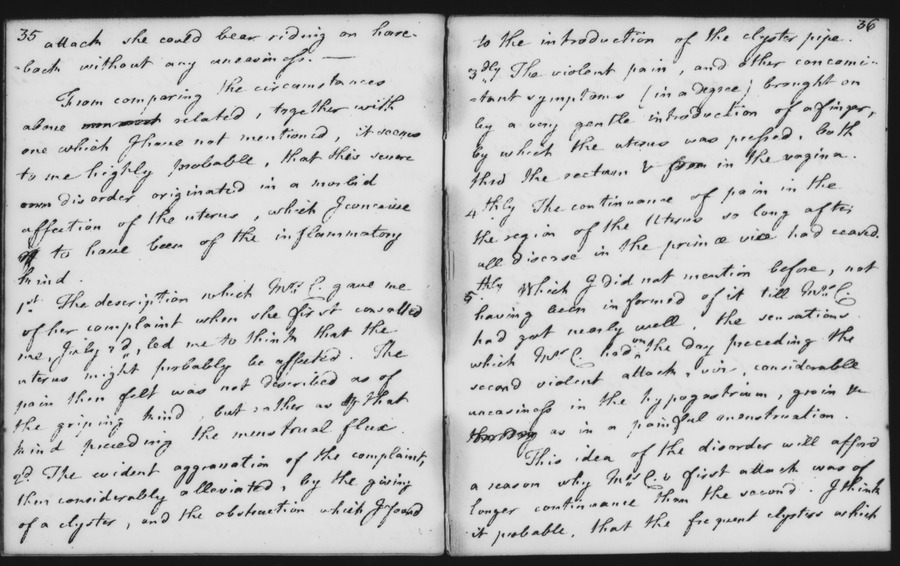 35
attack she could bear riding on horse-
-back without any uneasiness. —
From comparing the circumstances
above related, together with
one which I have not mentioned, it seems
to me highly probable, that this severe
disorder originated in a morbid
affection of the uterus, which I conceive
to have been of the inflammatory
kind.
1st The description which Mrs. C. gave me
of her complaint when she first consulted
me, July 2d, led me to think that the
uterus might probably be affected. The
pain then felt was not described as of
the griping kind, but rather as of that
kind preceeding the menstrual flux.
2d. The evident aggravation of the complaint,
then considerably alleviated, by the giving
of a clyster, and the obstruction which I found
36
to the introduction of the clyster pipe.
3dly The violent pain, and other concomi-
-tant symptoms (in a degree) brought on
by a very gentle introduction of a finger,
by which the uterus was pressed, both
thro the rectum & from in the vagina.
4thly The continuance of pain in the
the region of the Uterus so long after
all disease in the primæ viæ had ceased.
5thly Which I did not mention before, not
having been informed of it till Mrs C.
had got nearly well, the sensations
which Mrs C. had on the day preceding the
second violent attack, viz, considerable
uneasiness in the hypogastrium, groin &c
as in a painful menstruation.
This idea of the disorder will afford
a reason why Mrs C.'s first attack was of
longer continuance than the second. I think
it probable, that the frequent clysters which